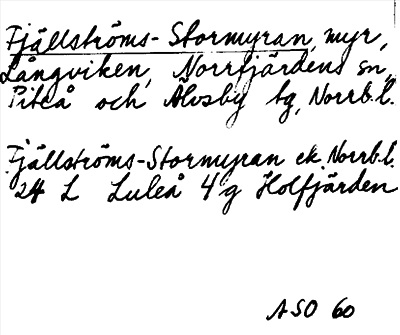 Fjällströms-Stormyran, myr,
Långviken, Norrfjärdens sn,
Piteå och Älvsby tg, Norrb.l.
Fjällströms-Stormyran ek. Norrb.l.
24 L Luleå 4 g Holfjärden
ASO 60